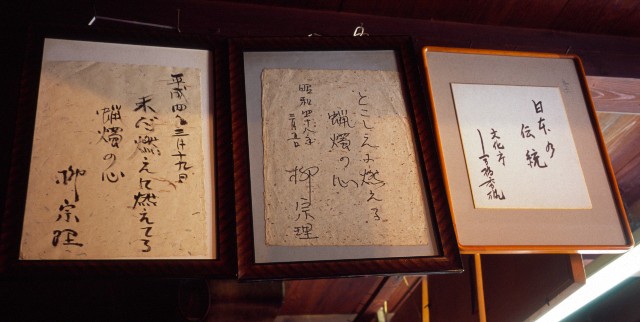 平成四年三月十九日
未だ燃えて燃えてる
蝋燭の心
柳宗理
とこしえに燃える
蝋燭の心
昭和四十八年
柳宗理
日本の
伝統